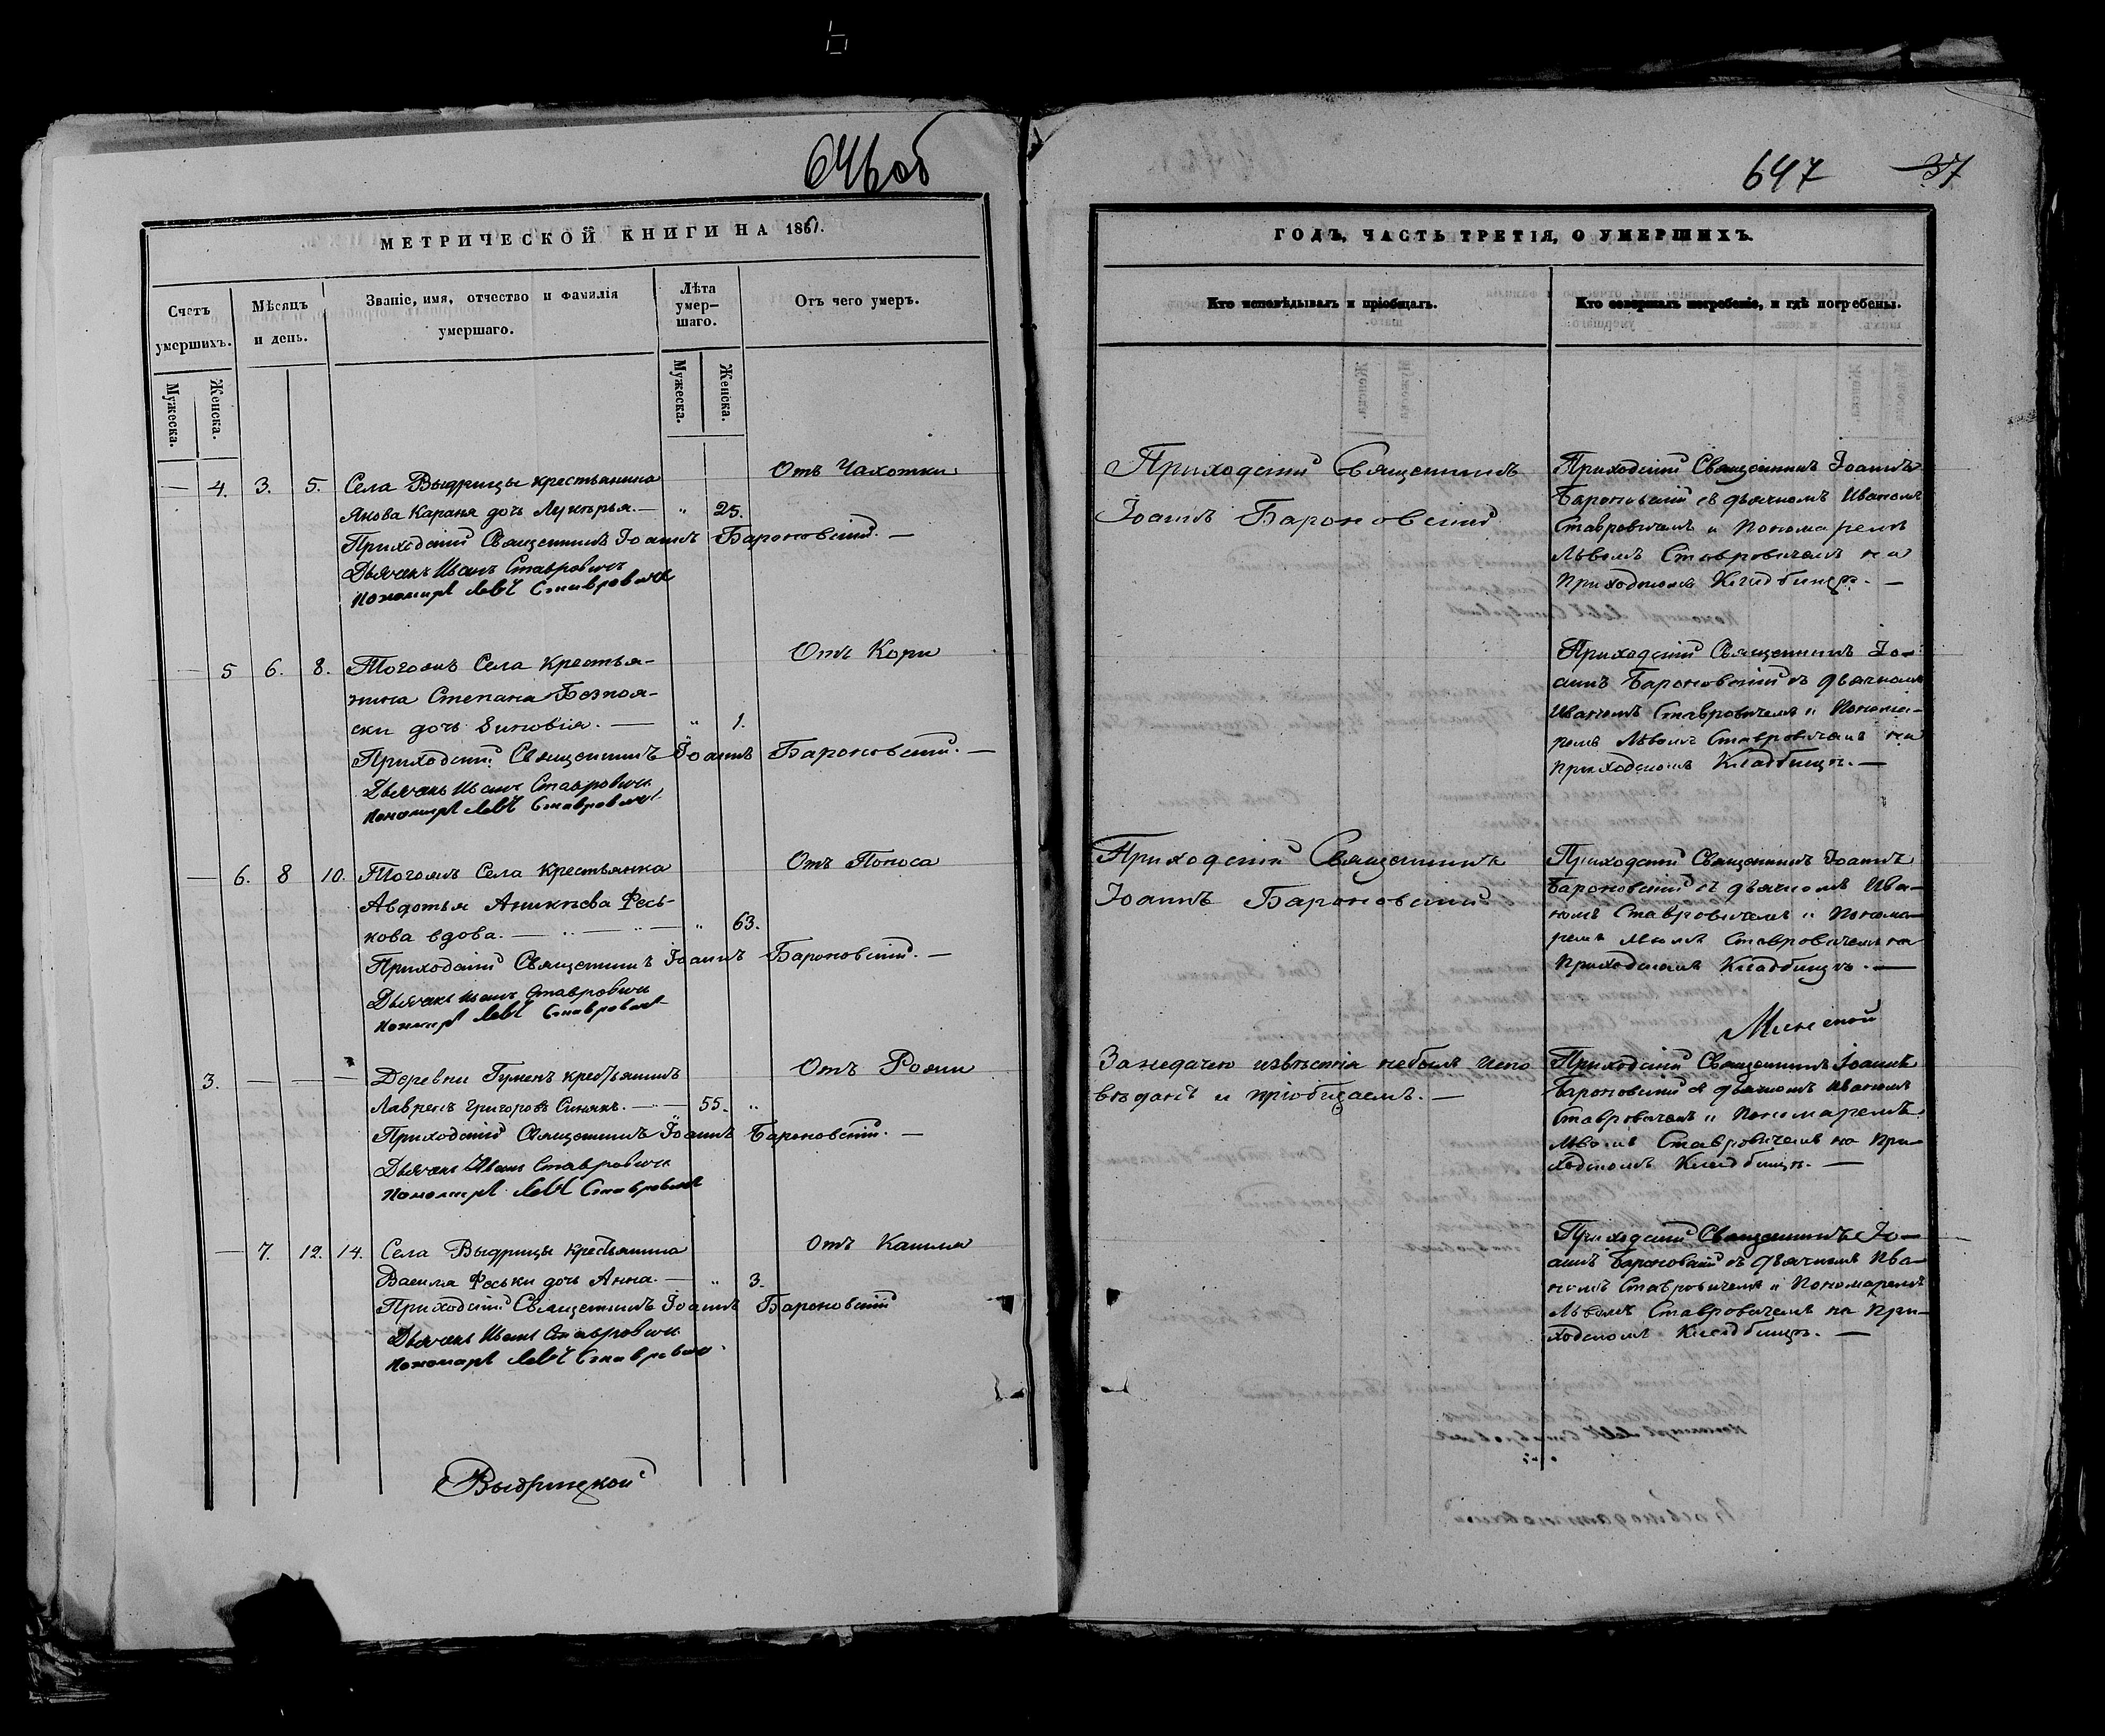 646об
МЕТРИЧЕСКОЙ КНИГИ НА 1861.
Счетъ умершихъ.
Мѣсяцъ и день.
Званіе, имя, отчество и фамилія умершаго.
Лѣта умер-шаго.
Отъ чего умеръ.
Мужеска.
Женска.
Мужеска.
Женска.
— 4. 3. 5. Села Выдрицы крестьянина Отъ Чахотки.
Якова Караня дочь Лукерья. — " 25.
Приходскій Священникъ Іоаннъ Бароновскій. —
Дьячекъ Иванъ Ставровичъ
Пономарь Левъ Ставровичъ
— 5 6. 8. Тогожъ Села Крестья- Отъ Кори
нина Степана Безпоя-
ски дочь Зиновія. — " 1.
Приходскій Священникъ Іоаннъ Бароновскій. —
Дьячекъ Иванъ Ставровичъ
Пономарь Левъ Ставровичъ
— 6. 8 10. Тогожъ Села Крестьянка Отъ Поноса
Авдотья Аникѣева Фесь-
кова вдова. — " — " — " 63.
Приходскій Священникъ Іоаннъ Бароновскій. —
Дьячекъ Иванъ Ставровичъ
Пономарь Левъ Ставровичъ
3. — — — Деревни Гуменъ крестьянинъ Отъ Рожи
Лавренъ Григоровъ Синякъ. — — 55. "
Приходскій Священникъ Іоаннъ Бароновскій. —
Дьячекъ Иванъ Ставровичъ
Пономарь Левъ Ставровичъ
— 7. 12. 14. Села Выдрицы крестьянина Отъ Кашля
Василя Феськи дочь Анна. — " 3.
Приходскій Священникъ Іоаннъ Бароновскій
Дьячекъ Иванъ Ставровичъ
Пономарь Левъ Ставровичъ.
Выдрицкой
647 37
ГОДЪ, ЧАСТЬ ТРЕТІЯ, О УМЕРШИХЪ.
Кто исповѣдывалъ и пріобщалъ.
Кто совершалъ погребеніе, и гдѣ погребены.
Приходскій Священникъ
Іоаннъ Бароновскій
Приходскій Священникъ Іоаннъ
Бароновскій съ дьячкомъ Иваномъ
Ставровичемъ и Пономаремъ
Львомъ Ставровичемъ на
Приходскомъ Кладбищѣ. —
Приходскій Священникъ Іо-
аннъ Бароновскій съ дьячкомъ
Иваномъ Ставровичемъ и Понома-
ремъ Львомъ Ставровичемъ на
Приходскомъ Кладбищѣ. —
Приходскій Священникъ
Іоаннъ Бароновскій
Приходскій Священникъ Іоаннъ
Бароновскій съ дьячкомъ Ива-
номъ Ставровичемъ и Понома-
ремъ Львомъ Ставровичемъ на
Приходскомъ Кладбищѣ. —
Минской
За недачею извѣстія небылъ испо
вѣданъ и пріобщаемъ. —
Приходскій Священникъ Іоаннъ
Бароновскій съ дьячкомъ Иваномъ
Ставровичемъ и Пономаремъ
Львомъ Ставровичемъ на При-
ходскомъ Кладбищѣ. —
Приходскій Священникъ Іо-
аннъ Бароновскій съ дьячкомъ Ива-
номъ Ставровичемъ и Пономаремъ
Львомъ Ставровичемъ на При-
ходскомъ Кладбищѣ. —